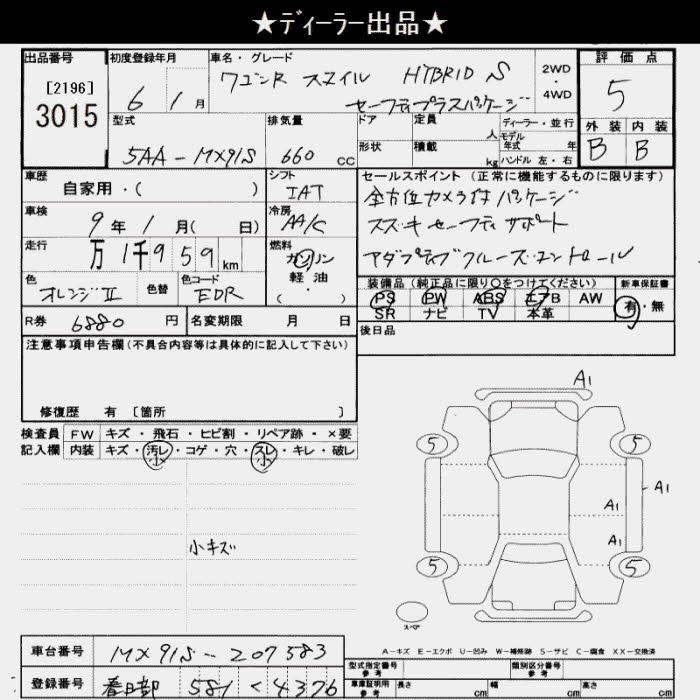 ★ディーラー出品★
出品番号 初度登録年月 車名・グレード 評価点
[2196] 6 年 1月 ワゴンR スマイル HYBRID S 2WD・4WD 5
3015 セーフティプラスパッケージ
型式 排気量 ドア 定員 人 ディーラー・並行 外装 内装
5AA-MX91S 660 CC 形状 積載 kg モデル年式 年 B B
ハンドル 左・右
車歴 シフト セールスポイント (正常に機能するものに限ります)
自家用・( ) IAT 全方位カメラ付パッケージ
車検 冷房 スズキセーフティサポート
9年 1月( 日) AA/C アダプティブクルーズコントロール
走行 燃料
万 1千9 5 9 km ガソリン
軽・油
( )
色 色替 色コード 装備品 (純正品に限り○をつけてください) 新車保証書
オレンジII EDR PS PW ABS エアB AW 有・無
SR ナビ TV 本革
R券 6880 円 名変期限 月 日 後日品
注意事項申告欄 (不具合内容等は具体的に記入して下さい)
修復歴 有 [箇所 ]
検査員 FW キズ・飛石・ヒビ割・リペア跡・×要
記入欄 内装 キズ・汚レ・コゲ・穴・スレ・キレ・破レ
小 小
小キズ
A1
5 5
A1
A1
A1
5 5
スペア
A-キズ E-エクボ U-凹み W-補修跡 S-サビ C-腐食 XX-交換済
車台番号 MX91S-207583
登録番号 春日部 581 く 4376
型式指定番号参考 類別区分番号参考
車庫証明用参考 長さ cm 幅 cm 高さ cm